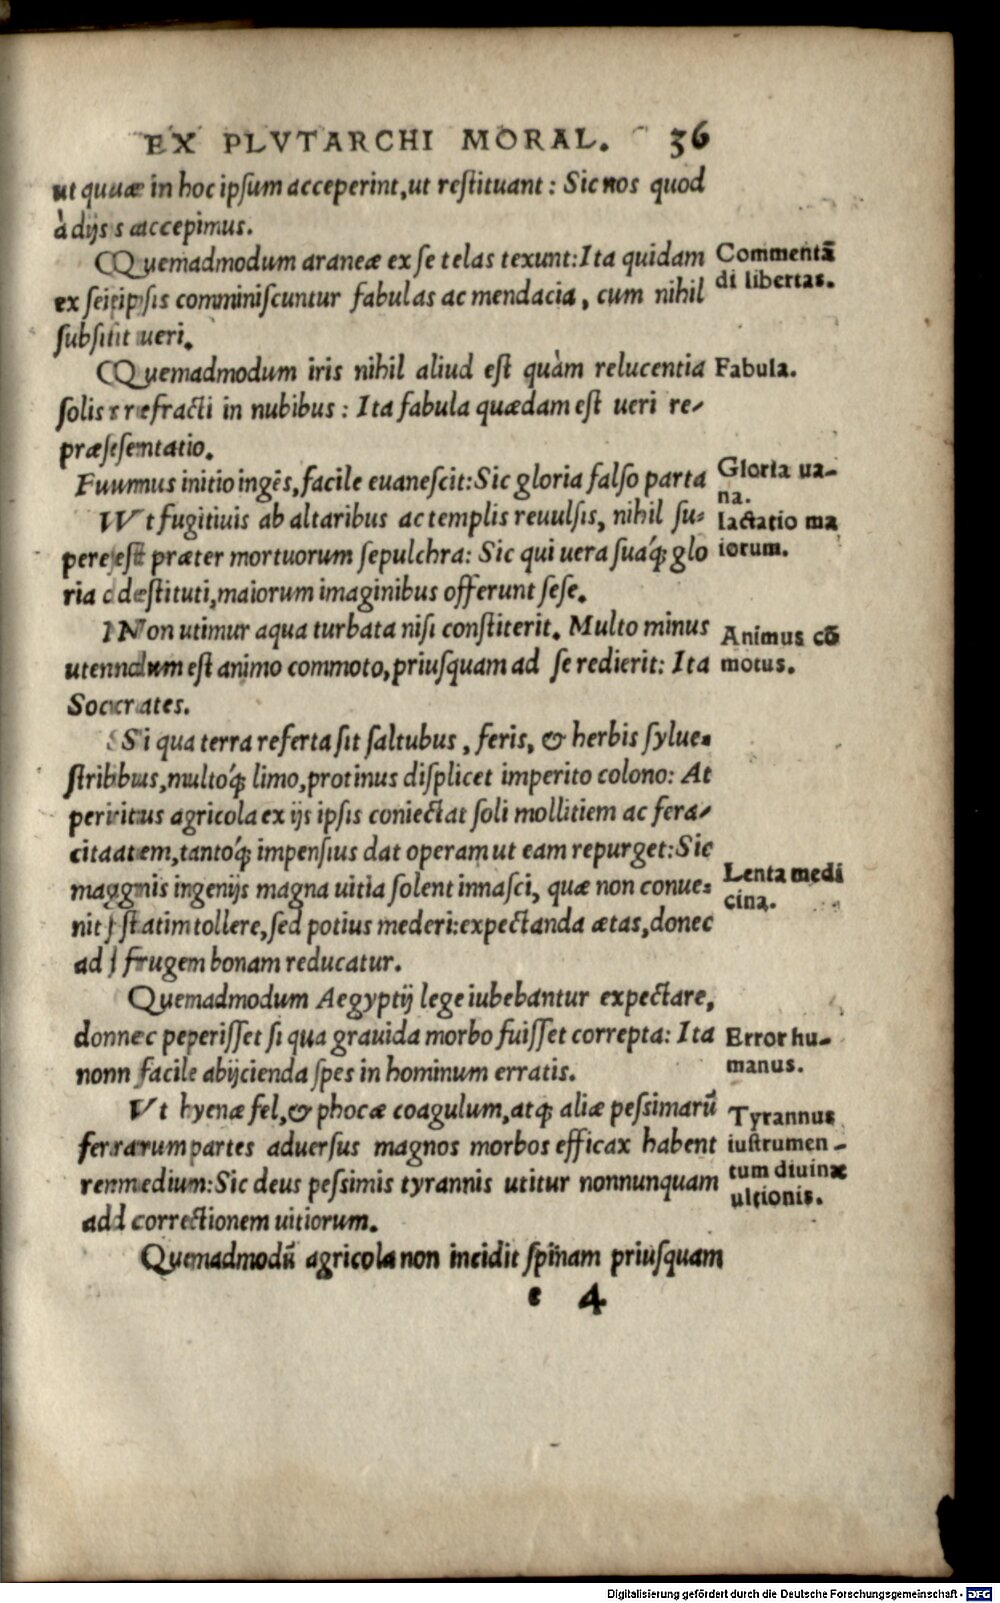 EX PLVTARCHI MORAL. 36
ut quæ in hoc ipsum acceperint, ut restituant: Sic nos quod
à dijs accepimus.
Quemadmodum araneæ ex se telas texunt: Ita quidam
ex seipsis comminiscuntur fabulas ac mendacia, cum nihil
subsit ueri.
Commentā
di libertas.
Quemadmodum iris nihil aliud est quàm relucentia
solis refracti in nubibus: Ita fabula quædam est ueri re-
præsentatio.
Fabula.
Fumus initio ingēs, facile euanescit: Sic gloria falso parta
Gloria ua-
na.
Vt fugitiuis ab altaribus ac templis reuulsis, nihil su-
perest præter mortuorum sepulchra: Sic qui uera suáq; glo
ria destituti, maiorum imaginibus offerunt sese.
Iactatio ma
iorum.
Non utimur aqua turbata nisi constiterit. Multo minus
utendum est animo commoto, priusquam ad se redierit: Ita
Socrates.
Animus cō
motus.
Si qua terra referta sit saltubus, feris, & herbis sylue-
stribus, multóq; limo, protinus displicet imperito colono: At
peritus agricola ex ijs ipsis coniectat soli mollitiem ac fera-
citatem, tantóq; impensius dat operam ut eam repurget: Sic
magnis ingenijs magna uitia solent innasci, quæ non conue-
nit statim tollere, sed potius mederi: expectanda ætas, donec
ad frugem bonam reducatur.
Lenta medi
cina.
Quemadmodum Aegyptij lege iubebantur expectare,
donec peperisset si qua grauida morbo fuisset correpta: Ita
non facile abijcienda spes in hominum erratis.
Error hu-
manus.
Vt hyenæ fel, & phocæ coagulum, atq; aliæ pessimarū
ferarum partes aduersus magnos morbos efficax habent
remedium: Sic deus pessimis tyrannis utitur nonnunquam
ad correctionem uitiorum.
Tyrannus
iustrumen-
tum diuinæ
ultionis.
Quemadmodū agricola non incidit spinam priusquam
e 4
Digitalisierung gefördert durch die Deutsche Forschungsgemeinschaft - DFG